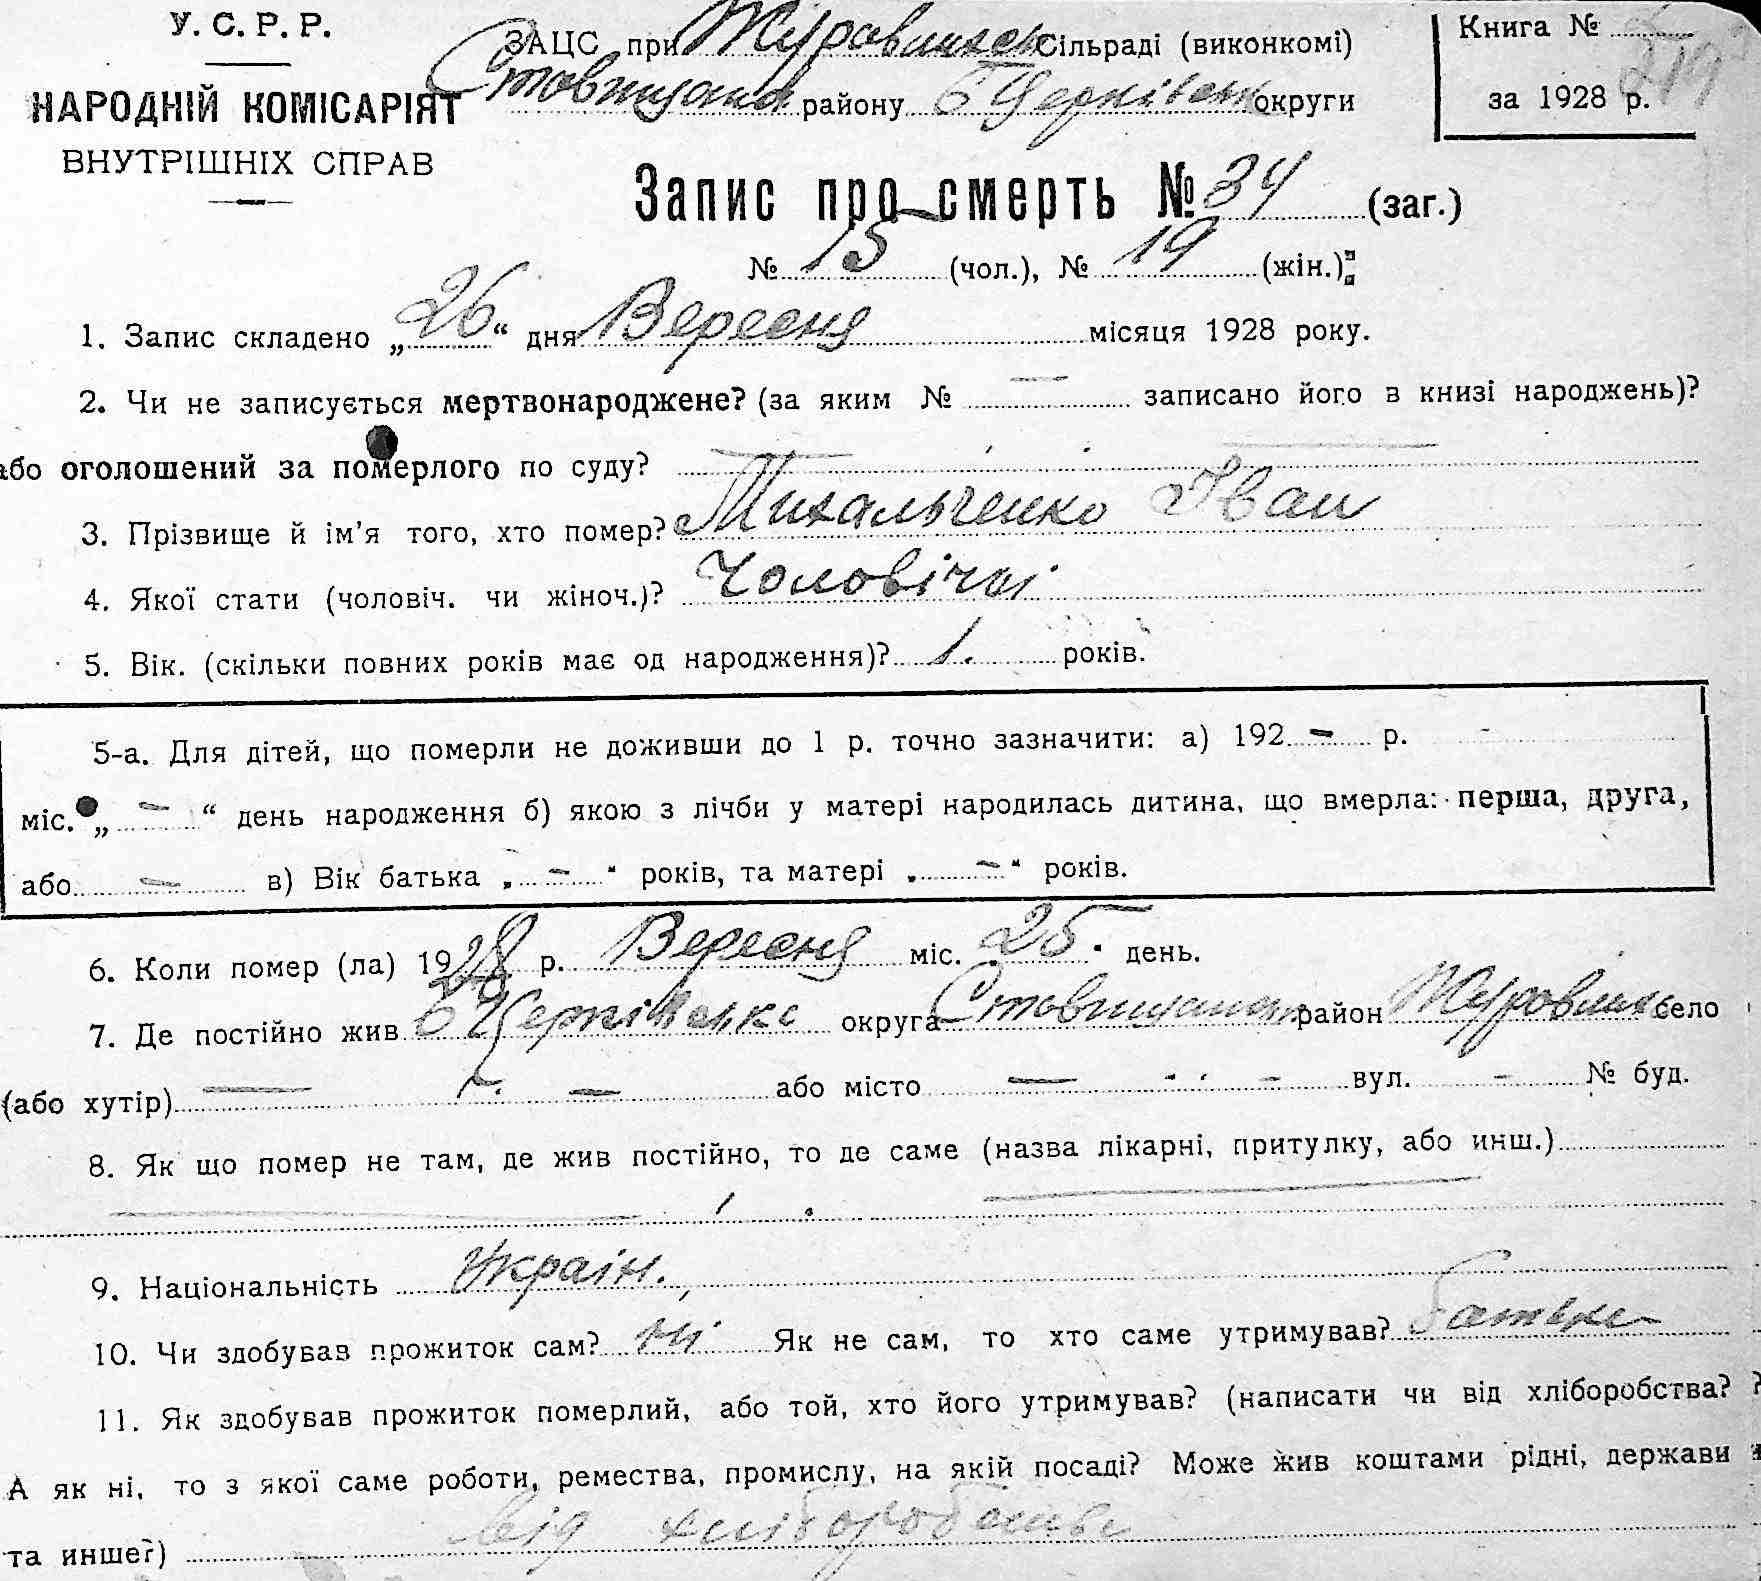 У. С. Р. Р.
НАРОДНІЙ КОМІСАРІЯТ
ВНУТРІШНІХ СПРАВ
ЗАЦС при Журавлихск Сільраді (виконкомі)
Ставищанск району Б Церківськ округи
Книга №
за 1928 р.
219
Запис про смерть № 34 (заг.)
№ 15 (чол.), № 19 (жін.);
1. Запис складено „ 26 “ дня Вересня місяця 1928 року.
2. Чи не записується мертвонароджене? (за яким № — записано його в книзі народжень)?
або оголошений за померлого по суду? —
3. Прізвище й ім'я того, хто помер? Михальченко Іван
4. Якої стати (чоловіч. чи жіноч.)? Чоловічої
5. Вік. (скільки повних років має од народження)? 1. років.
5-а. Для дітей, що померли не доживши до 1 р. точно зазначити: а) 192 — р. -
міс. „ — “ день народження б) якою з лічби у матері народилась дитина, що вмерла: перша, друга,
або — в) Вік батька „ — “ років, та матері „ — “ років.
6. Коли помер (ла) 1928 р. Вересня міс. 25 день.
7. Де постійно жив Б Церківська округа Ставищанск район Журавлиха село
(або хутір) — — або місто — - вул. - № буд.
8. Як що помер не там, де жив постійно, то де саме (назва лікарні, притулку, або инш.)
9. Національність Україн.
10. Чи здобував прожиток сам? Ні Як не сам, то хто саме утримував? батьки
11. Як здобував прожиток померлий, або той, хто його утримував? (написати чи від хліборобства? ?
А як ні, то з якої саме роботи, ремества, промислу, на якій посаді? Може жив коштами рідні, держави
та инше?) від хліборобства